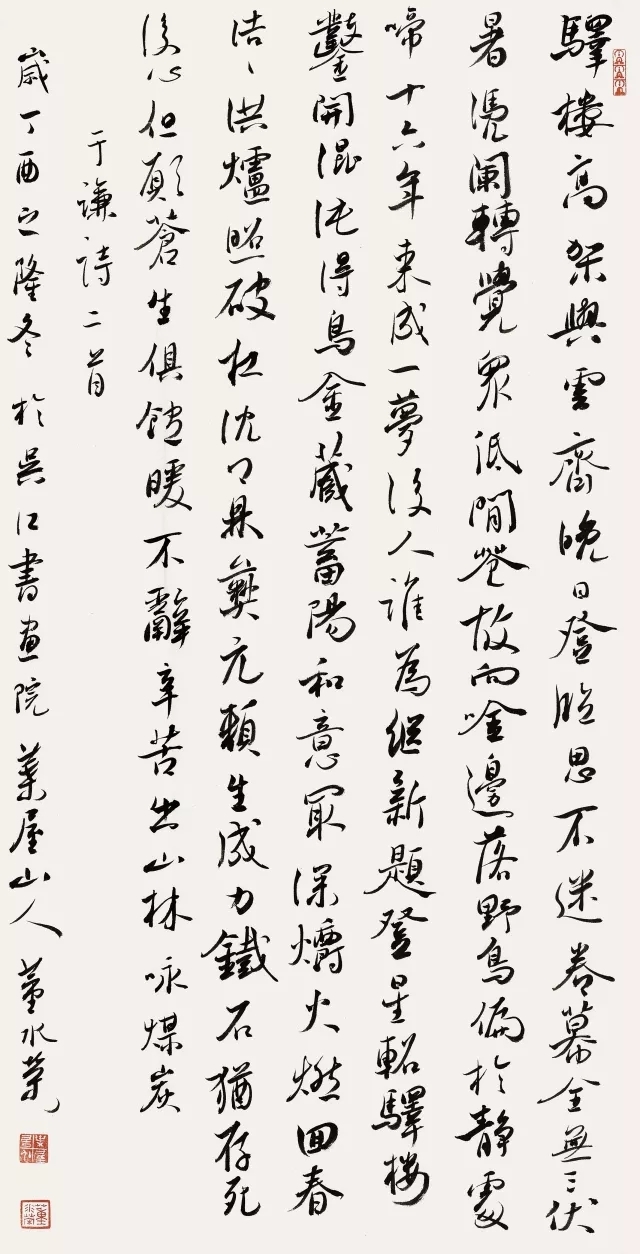 驛樓高架與雲齊晚日登臨思不迷卷幕全無三伏
暑憑闌轉覺眾低閒花故向唫邊落野鳥偏於靜處
啼十六年來成一夢後人誰為繼新題登星軺驛樓
鑿開混沌得烏金藏蓄陽和意最深爝火燃回春
浩〻洪爐照破夜沈〻鼎彝元賴生成力鐵石猶存死
後心但願蒼生俱飽暖不辭辛苦出山林 咏煤炭
于謙詩二首
歲丁酉之隆冬於吳江書畫院葉屋山人董水榮